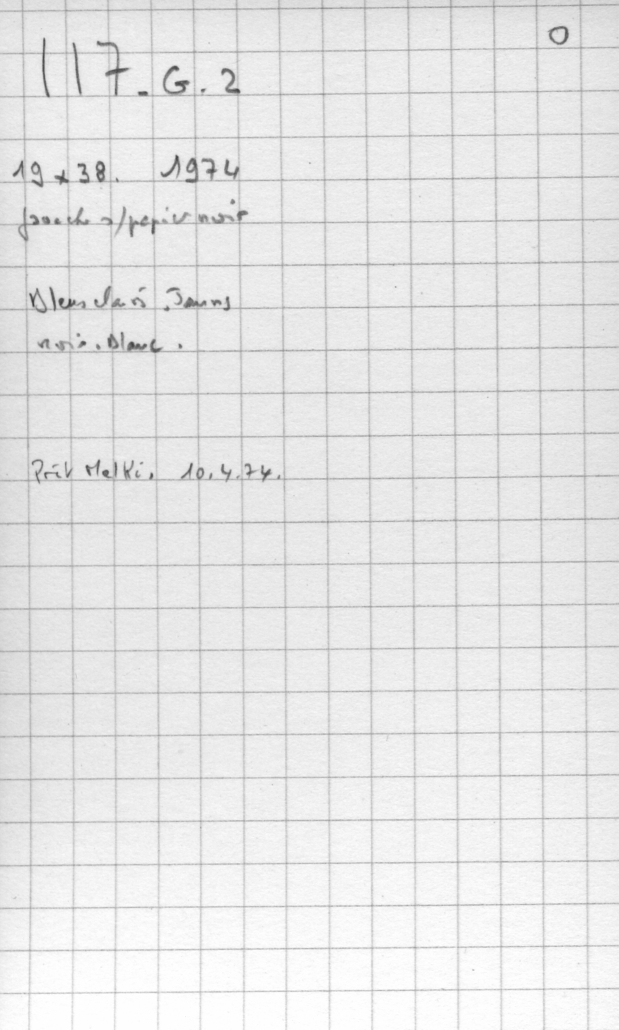 O
117 - G. 2
19 x 38. 1974
gouache s/papier noir
Bleus clairs. Jaunes
noir. Blanc.
Prêt Melki. 10.4.74.